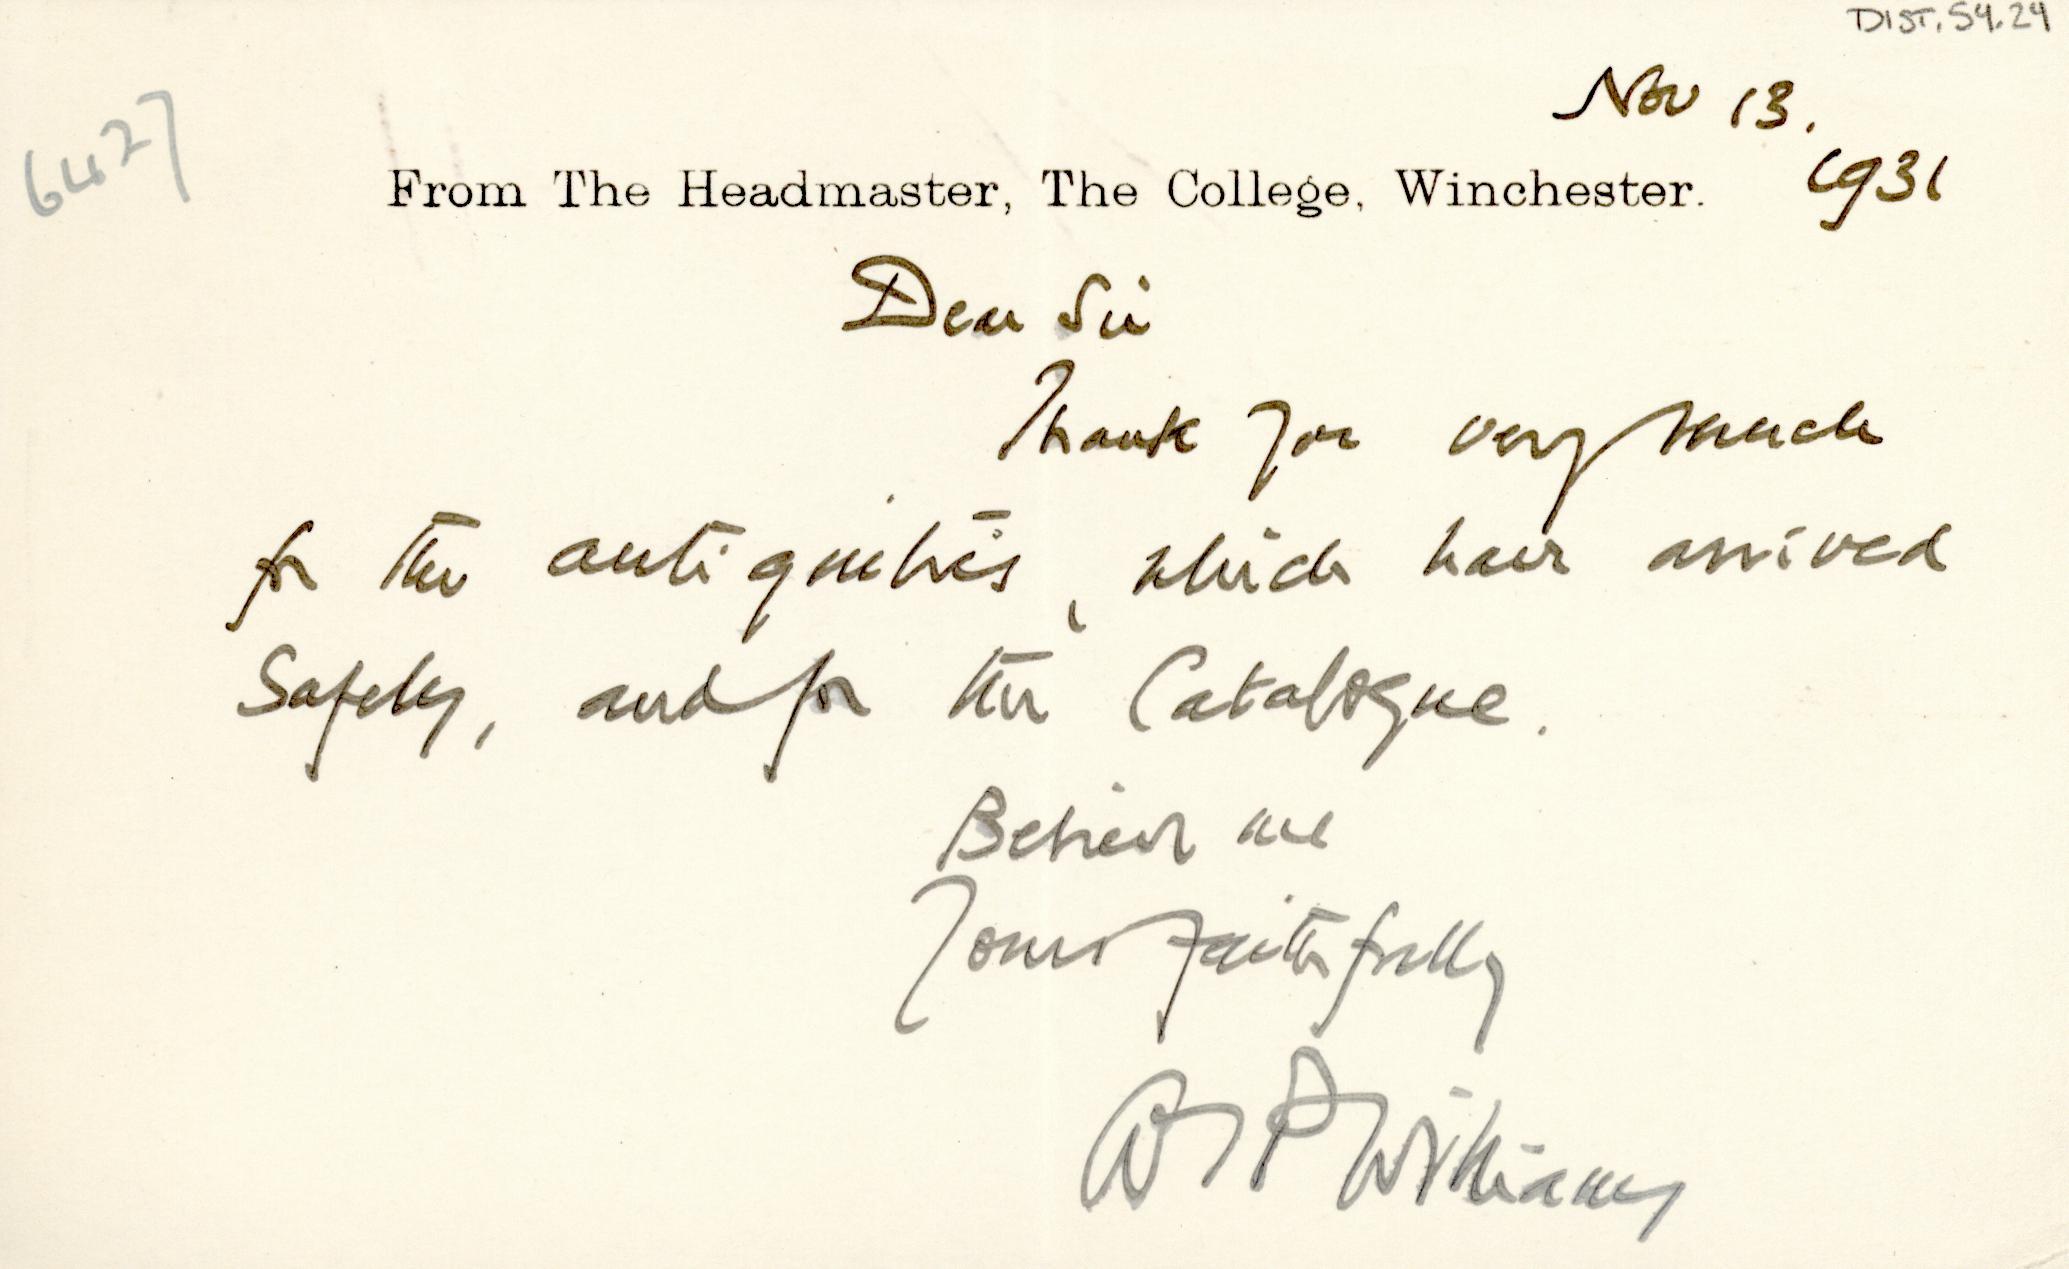 DIST.54.24
6427
Nov 13.
1931
From The Headmaster, The College, Winchester.
Dear Sir
Thank you very much
for the antiquities, which have arrived
safely, and for the Catalogue.
Believe me
Yours faithfully
A T P Williams